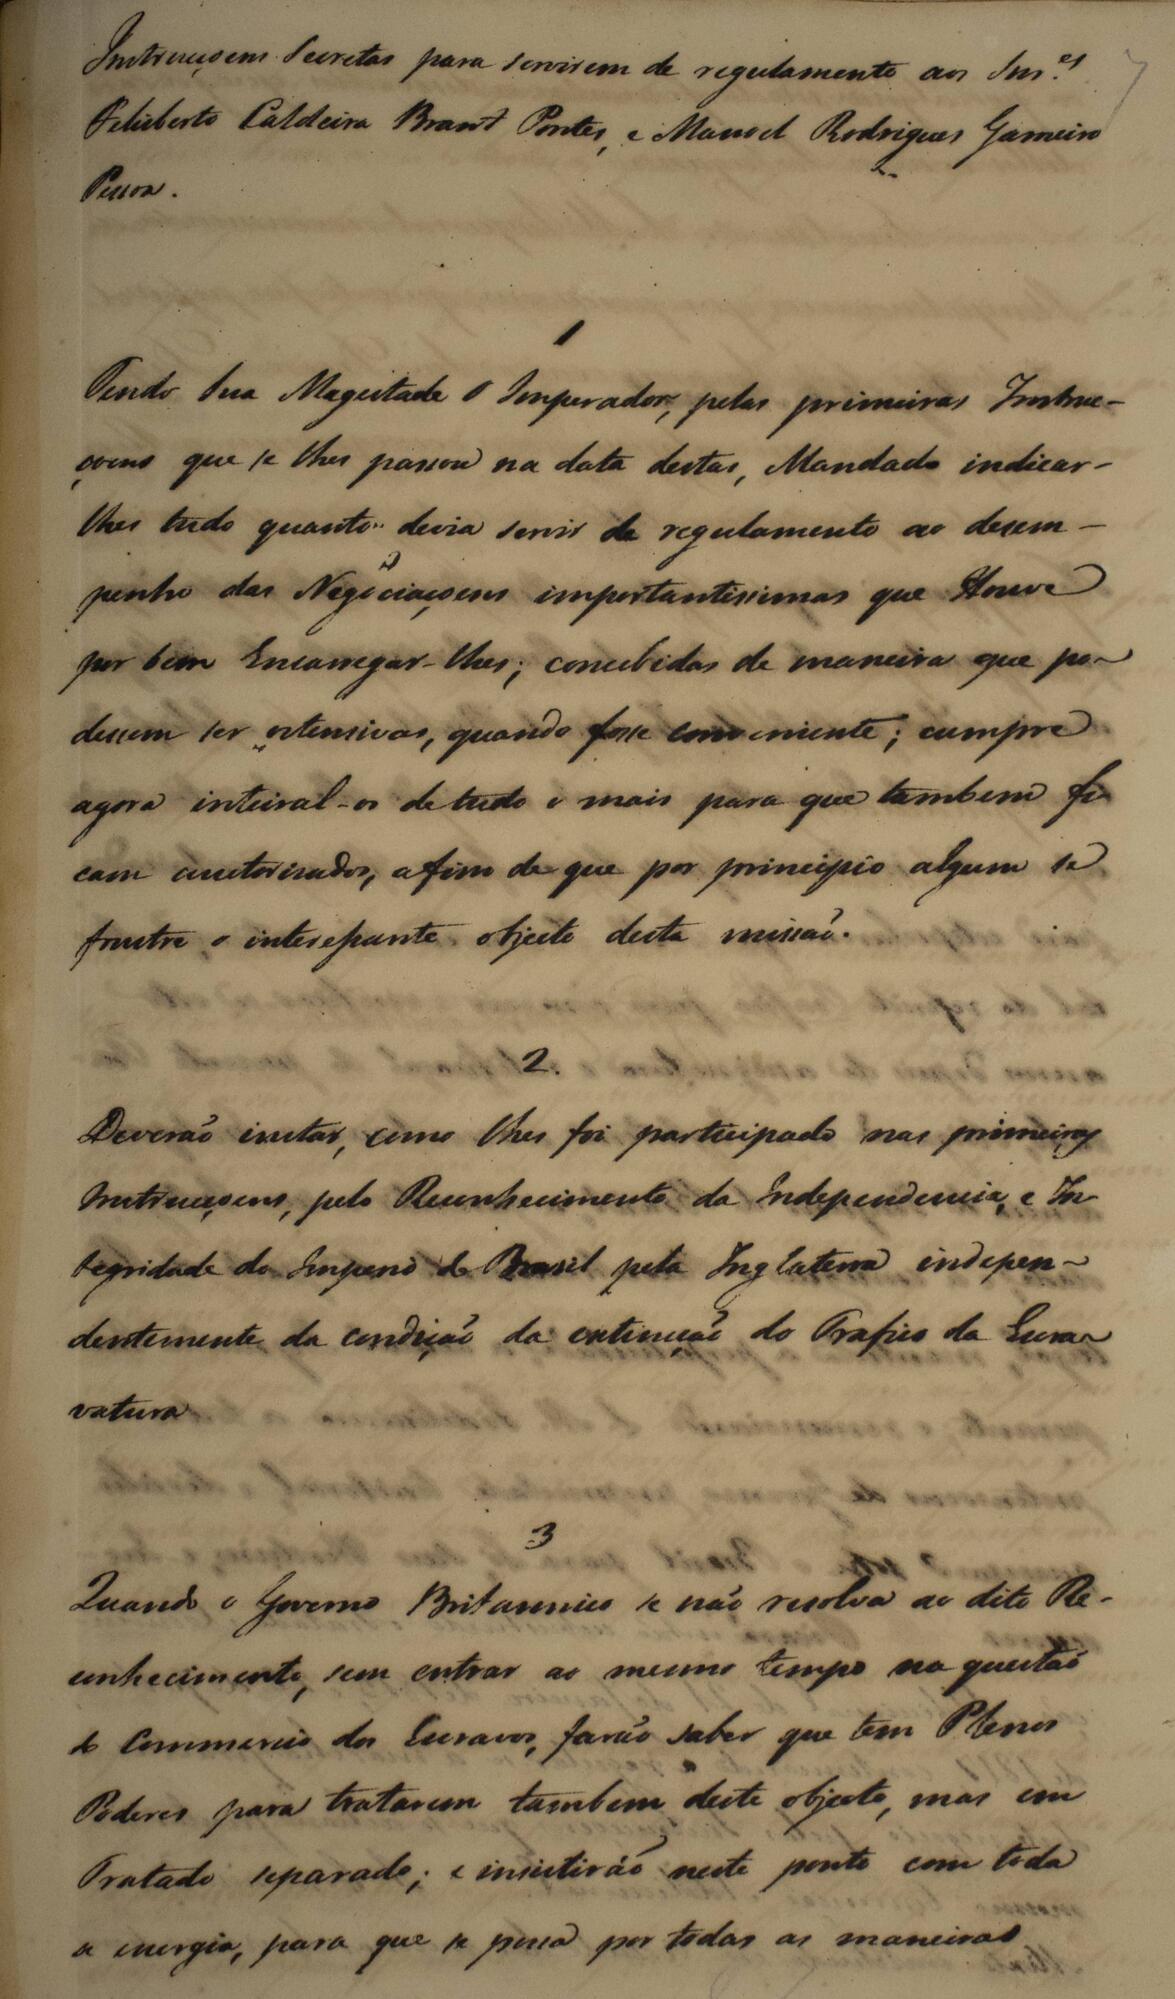 Instrucçoens Secretas para servirem de regulamento aos Snr.es
Feliberto Caldeira Brant Pontes, e Manoel Rodrigues Gameiro
Pessoa.
1
Tendo Sua Magestade O Imperador, pelas primeiras Instruc-
çoens que se lhes passou na data destas, Mandado indicar-
lhes tudo quanto devia servir de regulamento ao desem-
penho das Negociaçoens importantissimas que Houve
por bem Encarregar-lhes; concebidas de maneira que po-
dessem ser ostensivas, quando fosse conveniente; cumpre
agora inteiral-os de tudo o mais para que tambem fi-
cam auctorisados, afim de que por principio algum se
frustre o interessante objecto desta missaõ.
2.
Deveraõ instar, como lhes foi participado nas primeiras
Instrucçoens, pelo Reconhecimento da Independencia, e In-
tegridade do Imperio do Brasil pela Inglaterra indepen-
dentemente da condiçaõ da extincçaõ do Trafico da Escra-
vatura
3
Quando o Governo Britannico se naõ resolva ao dito Re-
conhecimento, sem entrar ao mesmo tempo na questaõ
do Commercio dos Escravos, faraõ saber que tem Plenos
Poderes para tratarem tambem deste objecto, mas em
Tratado separado; e insistiraõ neste ponto com toda
a energia, para que se possa por todas as maneiras